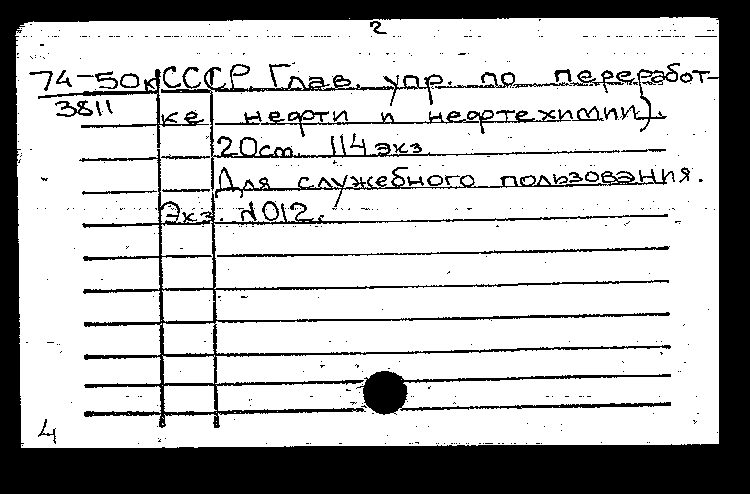 2
74-50к СССР. Глав. упр. по переработ-
3811 ке нефти и нефтехимии).
20см. 114 экз
Для служебного пользования.
Экз. №012.
4